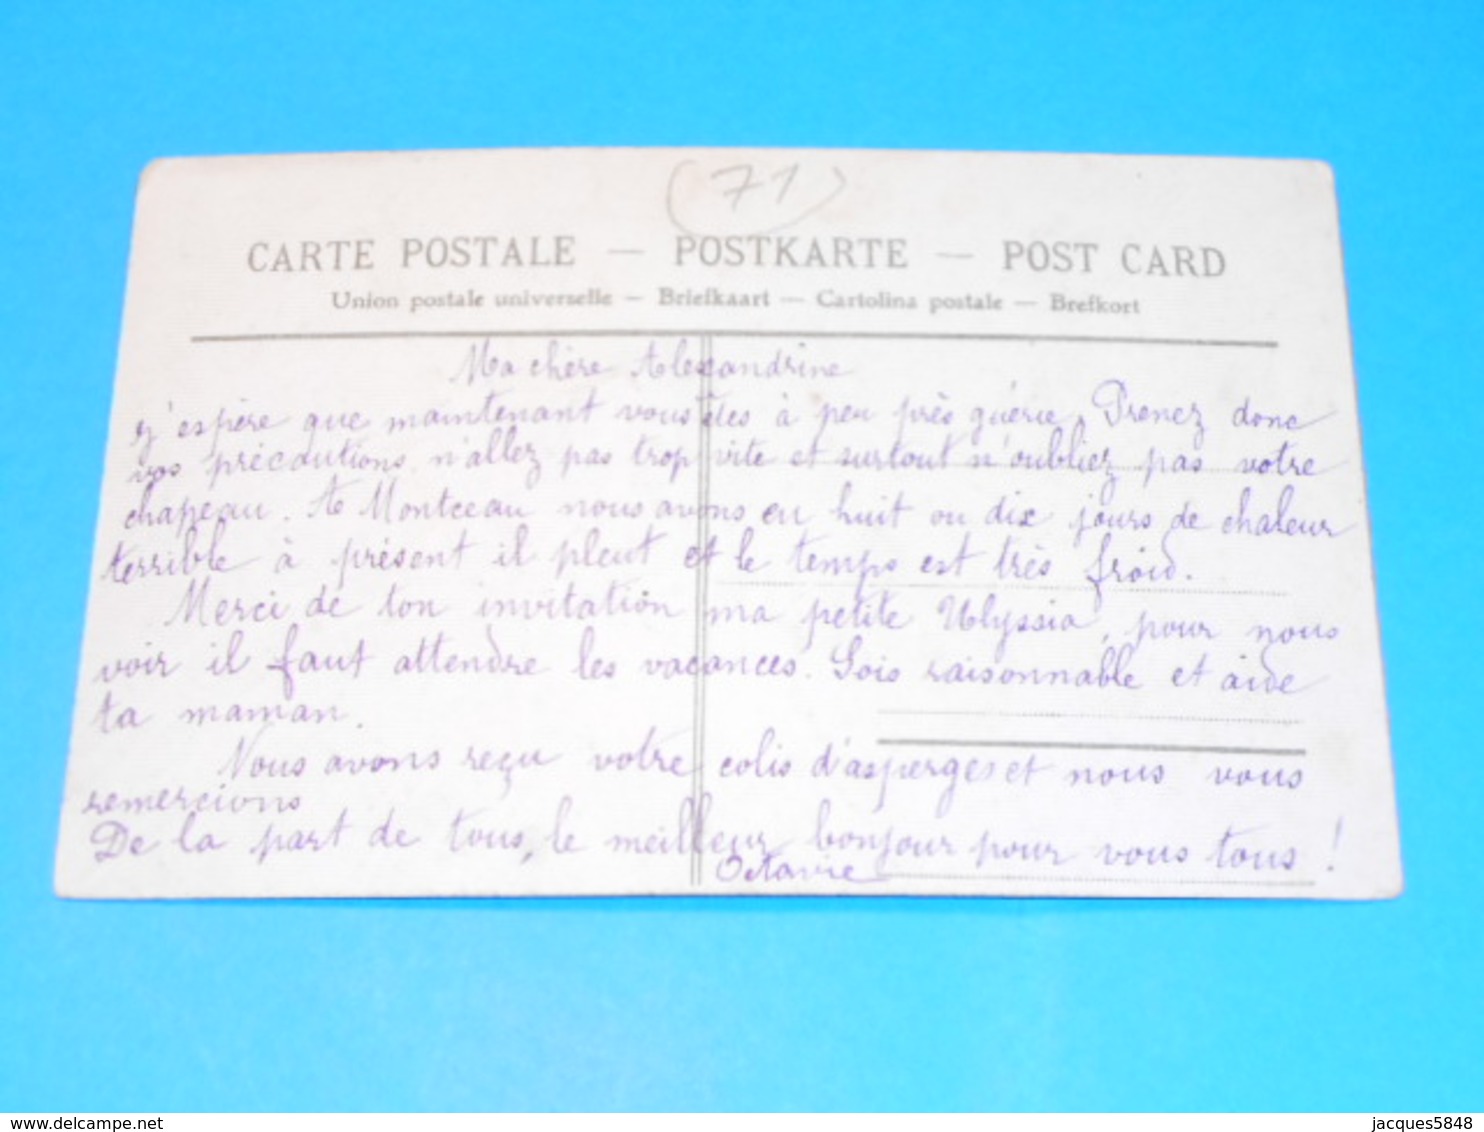 (71)
CARTE POSTALE — POSTKARTE — POST CARD
Union postale universelle — Briefkaart — Cartolina postale — Brefkort
Ma chère Alexandrine
j'espère que maintenant vous êtes à peu près guérie. Prenez donc
vos précautions n'allez pas trop vite et surtout n'oubliez pas votre
chapeau. A Montceau nous avons eu huit ou dix jours de chaleur
terrible à présent il pleut et le temps est très froid.
Merci de ton invitation ma petite Ulyssia, pour nous
voir il faut attendre les vacances. Sois raisonnable et aide
ta maman.
Nous avons reçu votre colis d'asperges et nous vous
remercions
De la part de tous, le meilleur bonjour pour vous tous !
Octavie
delcampe.net
jacques5848